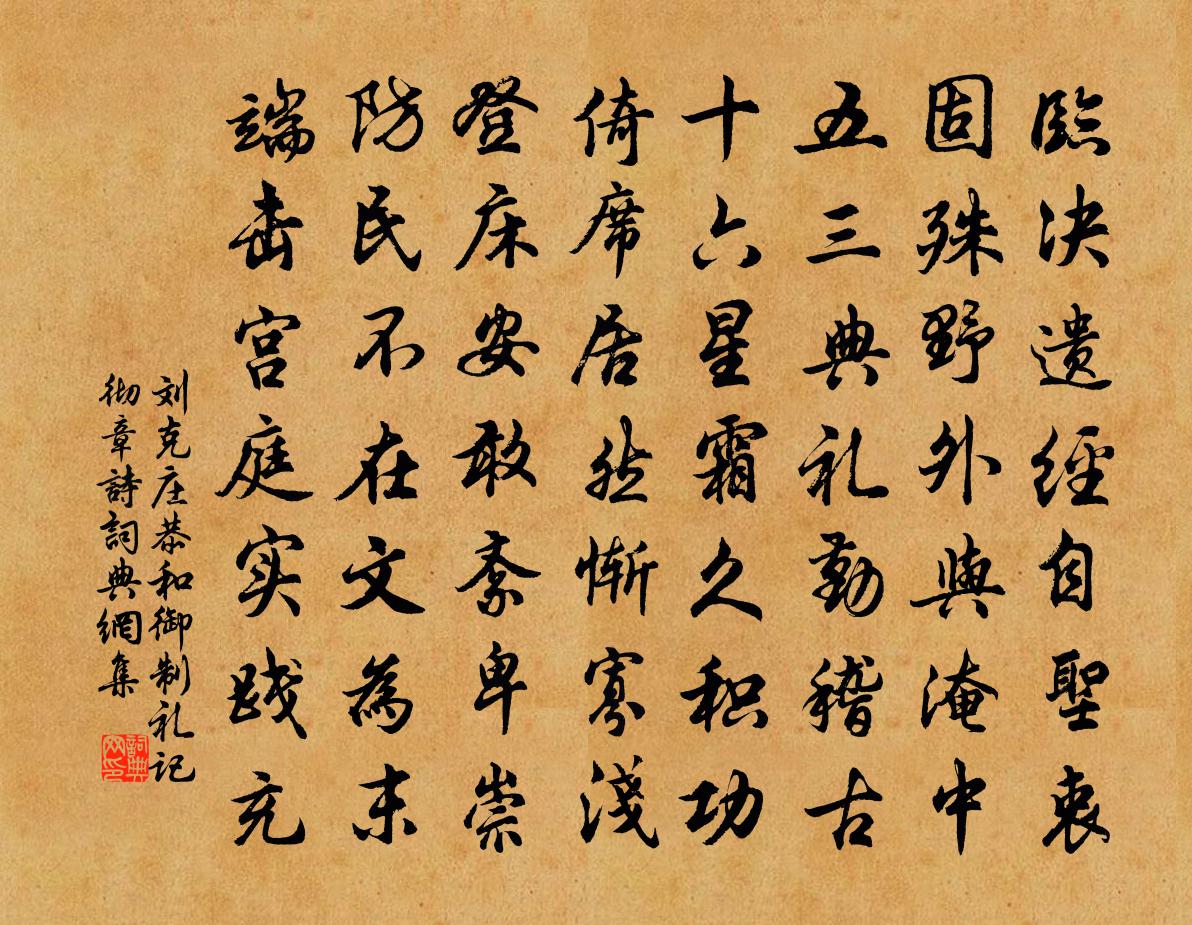 臨决遗經自聖衷
固殊野外與淹中
五三典礼勤稽古
十六星霜久积功
倚席居然慚寡淺
登床安敢紊卑崇
防民不在文為末
端击宫庭实践充
刘克庄恭和御制礼记
彻章詩詞典網集
詞典网印